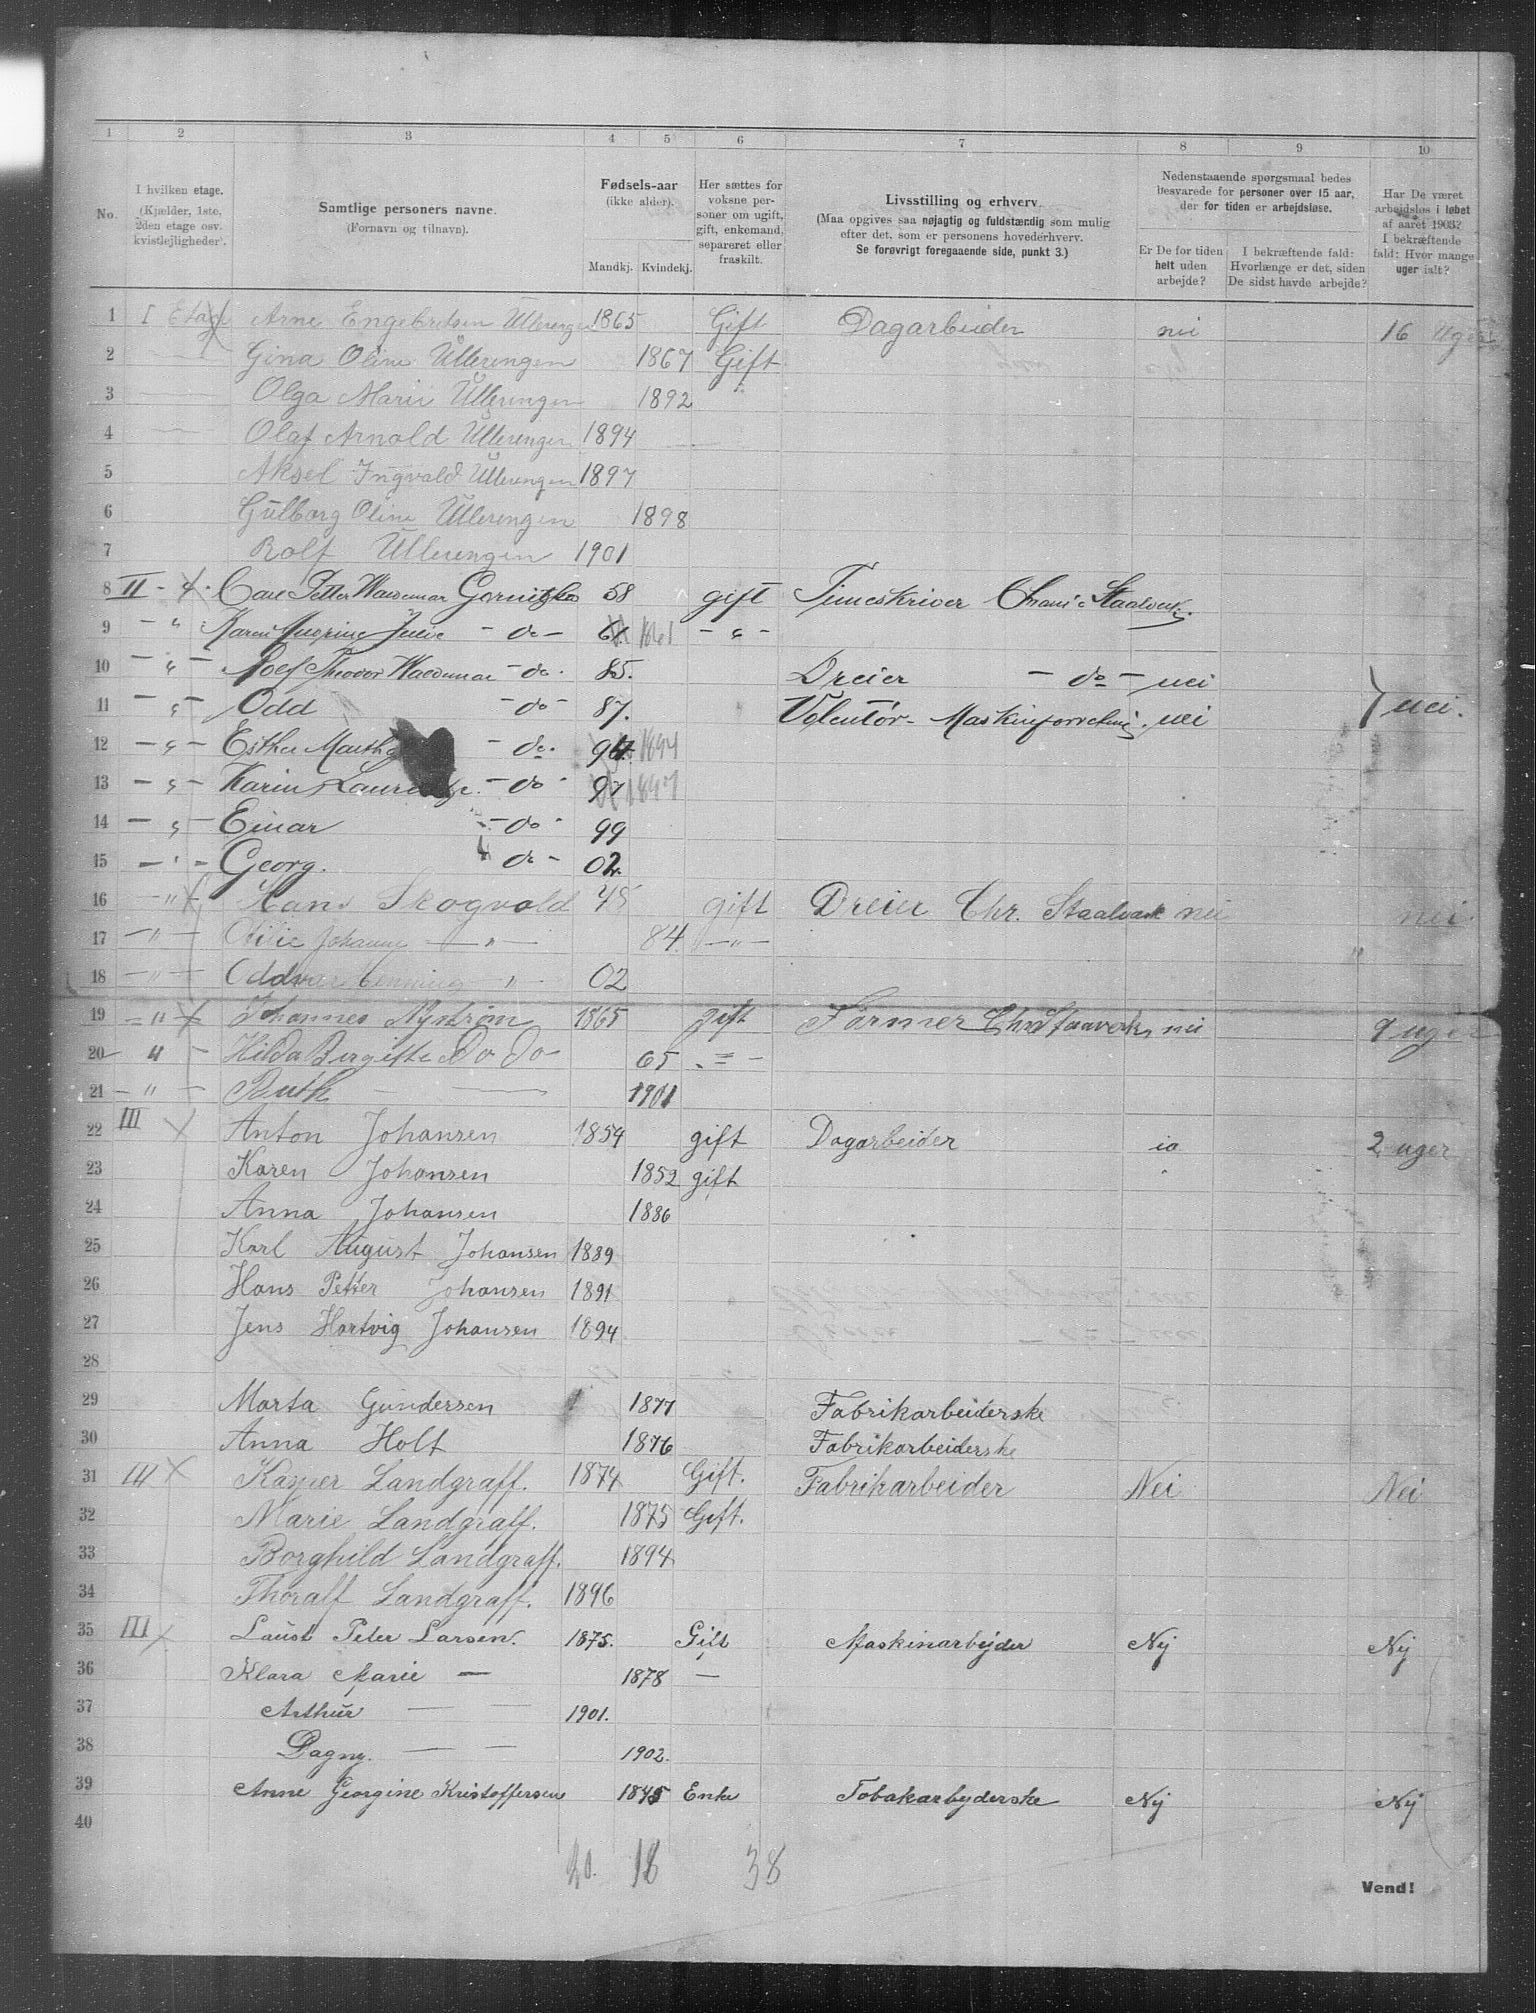 1 2 3 4 5 6 7 8 9 10
No.
I hvilken etage. (Kjælder, 1ste, 2den etage osv. kvistleiligheder).
Samtlige personers navne. (Fornavn og tilnavn).
Fødsels-aar (ikke alder).
Mandkj. Kvindekj.
Her sættes for voksne personer om ugift, gift, enkemand, separeret eller fraskilt.
Livsstilling og erhverv.
(Maa opgives saa nøjagtig og fuldstændig som mulig efter det, som er personens hovederhverv.
Se forøvrigt foregaaende side, punkt 3.)
Nedenstaaende spørgsmaal bedes besvarede for personer over 15 aar, der for tiden er arbejdsløse.
Er De for tiden helt uden arbejde?
I bekræftende fald: Hvorlænge er det, siden De sidst havde arbejde?
Har De været arbejdsløs i løbet af aaret 1903? I bekræftende fald: Hvor mange uger ialt?
1 I Etag Arne Engebretsen Ullerengen 1865 Gift Dagarbeider nei 16 uger
2 Gina Oline Ullerengen 1867 Gift
3 Olga Marie Ullerengen 1892
4 Olaf Arnold Ullerengen 1894
5 Aksel Ingvald Ullerengen 1897
6 Gulborg Oline Ullerengen 1898
7 Rolf Ullerengen 1901
8 II - Petter Waldemar Gornitzka 58 gift Timeskriver Chrania Staalverk
9 - " Karen Julie - do - 1861 - " -
10 - " - Rolf Theodor Waldemar - do - 85. Dreier - do - nei
11 - " - Odd - do - 87. Volentør - Maskinforretning. nei } nei.
12 - " - Esther Martha - do - 94 1894
13 - " - Karin - do - 97 1897
14 - " - Einar - do - 99
15 - " - Georg. do - 02.
16 - " - Hans Skogvold 45 gift Dreier Chr. Staalverk nei nei
17 - " - Johanne - " - 84. - " -
18 - " - Oddvar Henning " 02
19 - " - Johannes Nystrøm 1865 gift Former Chr Staaverk nei 9 uger
20 " - Hilda Bergitte Do Do 65 - " -
21 - " - Ruth 1901
22 III Anton Johansen 1854 gift Dagarbeider ia 2 uger
23 Karen Johansen 1852 gift
24 Anna Johansen 1886
25 Karl August Johansen 1889
26 Hans Petter Johansen 1891
27 Jens Hartvig Johansen 1894
28
29 Marta Gundersen 1877 Fabrikarbeiderske
30 Anna Holt 1876 Fabrikarbeiderske
31 III Kasper Landgraff. 1874 Gift. Fabrikarbeider Nei Nei
32 Marie Landgraff. 1875 Gift.
33 Borghild Landgraff. 1894
34 Thoralf Landgraff. 1896
35 III Laust Peter Larsen. 1875. Gift Maskinarbejder Nej Nej
36 Klara Marie — 1878 —
37 Arthur — — 1901.
38 Dagny. — — 1902.
39 Anne Georgine Kristoffersen 1845 Enke Tobakarbyderske Nej Nej
40
20. 18 38
Vend!